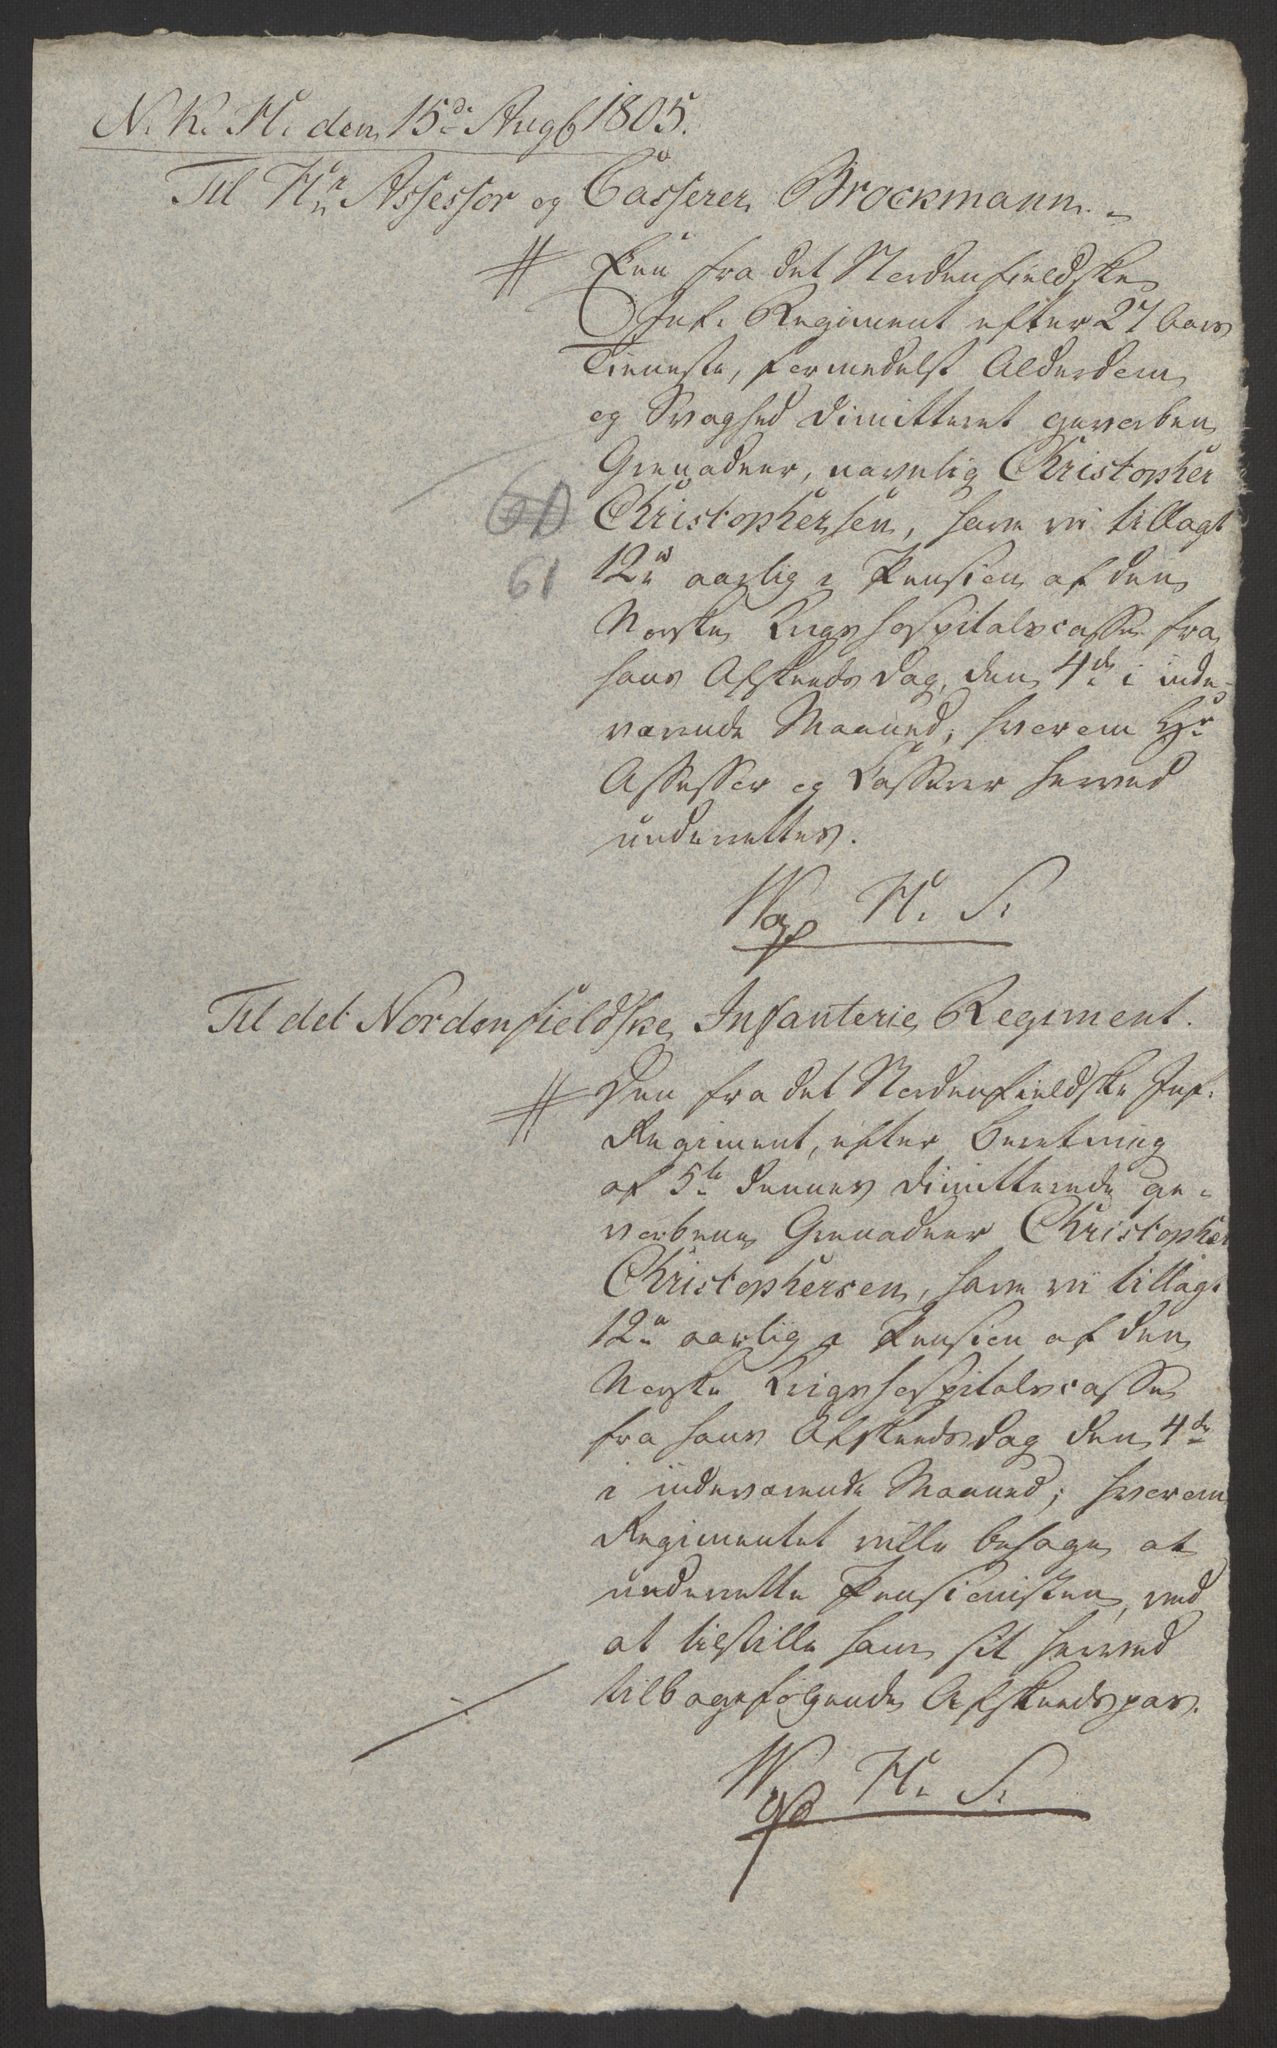 N. K. H. den 15de Augs 1805.
Til Hr. Assessor og Casserer Brockmann.
# Een fra det Nordenfieldske
Inf. Regiment efter 27 Aars
Tieneste, formedelst Alderdom
og Svaghed dimitteret geworben
Grenadeer, navnlig Christopher
Christophersen, have vi tillagt
61
12 rd aarlig i Pension af den
Norske Krigshospitalscasse fra
hans Afskeeds Dag, den 4de i inde-
værende Maaned, hvorom Hr.
Assessor og Casserer herved
underrettes.
H. S.
Til det Nordenfieldske Infanterie Regiment.
# Den fra det Nordenfieldske Inf.
Regiment, efter Beretning
af 5te dennes dimitterede ge-
vorbene Grenadeer Christopher
Christophersen, have vi tillagt
12 rd aarlig i Pension af den
Norske Krigshospitalscasse
fra hans Afskeedsdag den 4de
i indeværende Maaned; hvorom
Regimentet ville behage at
underrette Pensionisten, ved
at tilstille ham sit herved
tilbagefølgende Afskeedspas.
H. S.